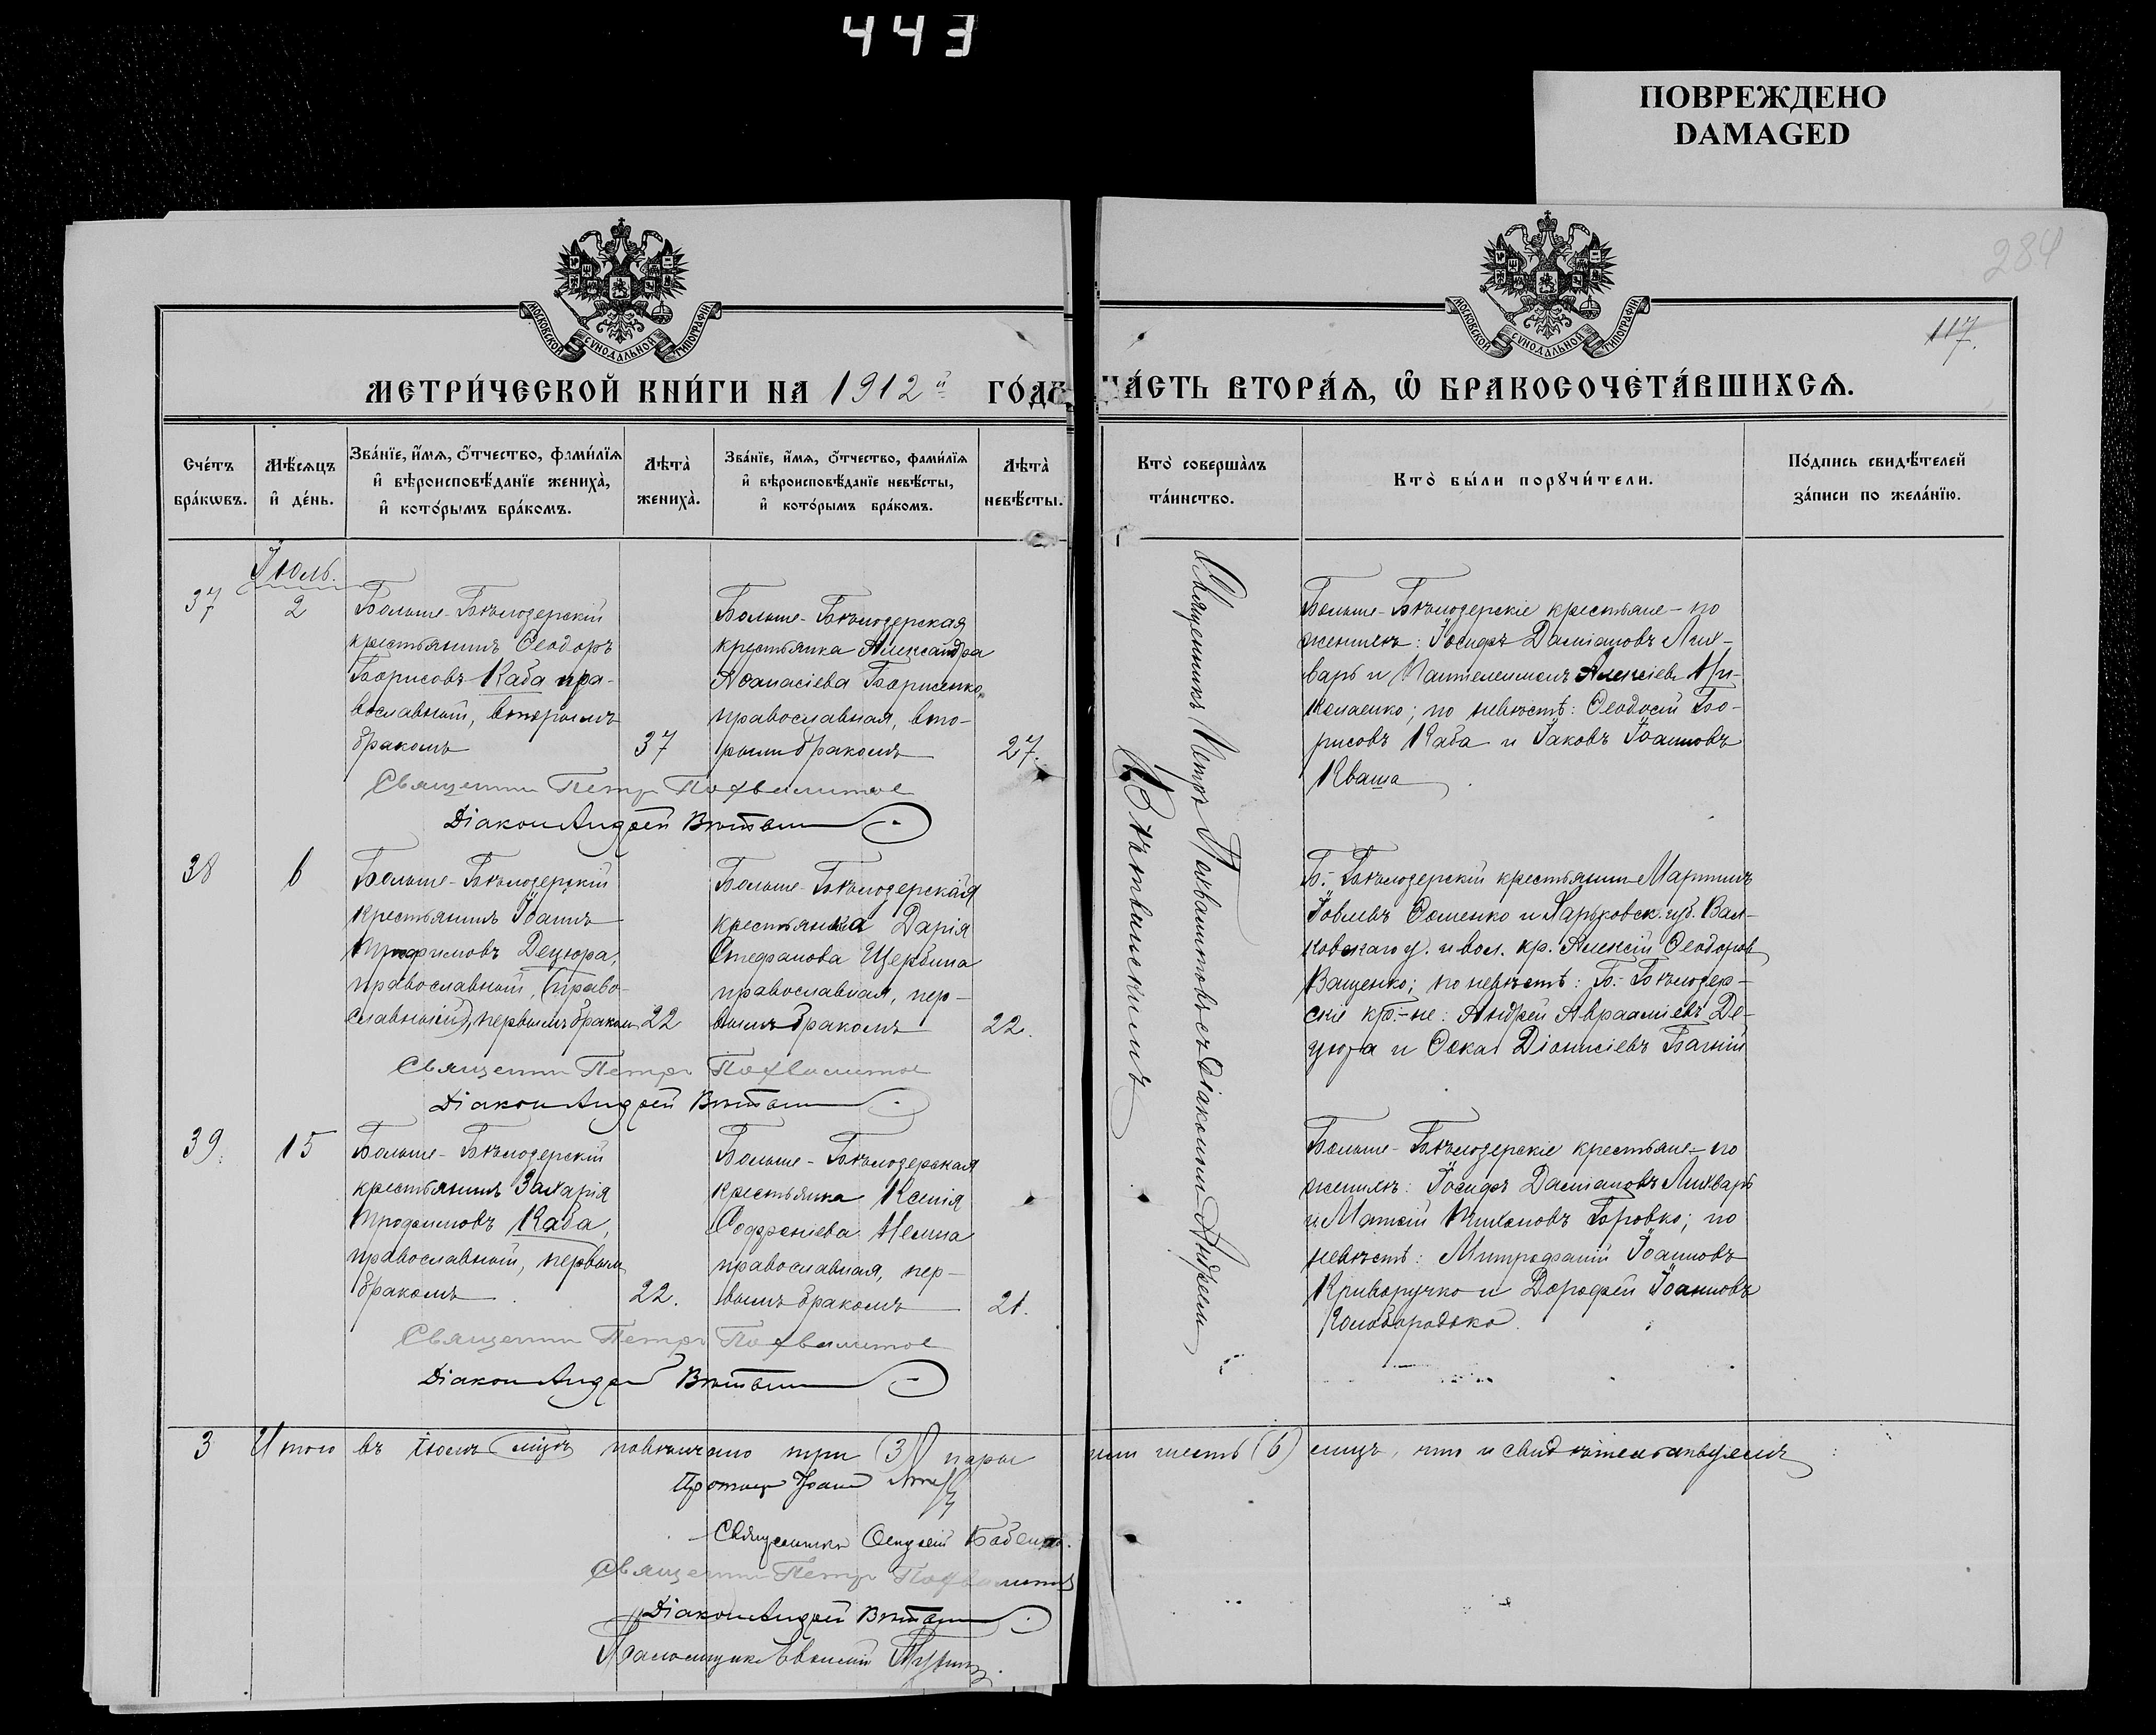 443
ПОВРЕЖДЕНО
DAMAGED
284
117.
МОСКОВСКОЙ СУНОДАЛЬНОЙ ТИПОГРАФІИ
МОСКОВСКОЙ СУНОДАЛЬНОЙ ТИПОГРАФІИ
МЕТРИ́ЧЕСКОЙ КНИ́ГИ НА 1912й ГО́ДЪ
ЧА́СТЬ ВТОРА́Ѧ, Ѡ҆ БРАКОСОЧЕТА́ВШИХСѦ.
Сче́тъ
бра́кѡвъ.
Мѣ́сѧцъ
и҆ де́нь.
Зва́нїе, и҆́мѧ, ѻ҆́тчество, фами́лїѧ
и҆ вѣроисповѣ́данїе жениха̀,
и҆ кото́рымъ бра́комъ.
Лѣта̀
жениха̀.
Зва́нїе, и҆́мѧ, ѻ҆́тчество, фами́лїѧ
и҆ вѣроисповѣ́данїе невѣ́сты,
и҆ кото́рымъ бра́комъ.
Лѣта̀
невѣ́сты.
Кто̀ соверша̀лъ
та́инство.
Кто̀ бы́ли порꙋчи́тели.
По́дпись свидѣ́телей
за́писи по жела́нїю.
Іюль.
37
2
Больше-Бѣлозерскій
крестьянинъ Ѳеодоръ
Борисовъ Каба пра-
вославный, вторымъ
бракомъ
37
Больше-Бѣлозерская
крестьянка Александра
Аѳанасіева Борисенко,
православная, вто-
рымъ бракомъ
27.
Священникъ Петръ Похвалитовъ съ Діакономъ Андреемъ
Вѣтвинскимъ
Больше-Бѣлозерскіе крестьяне-по
женихѣ: Іосифъ Даміановъ Лих-
варь и Пантелеимонъ Алексіевъ Ни-
коленко; по невѣстѣ: Ѳеодосій Бо-
рисовъ Каба и Іаковъ Іоанновъ
Кваша
Священни Петръ Похвалитов
Діакон Андрей
38
6
Больше-Бѣлозерскій
крестьянинъ Іоаннъ
Трофимовъ Децюра,
православный, (право-
славный), первымъ бракомъ
22
Больше-Бѣлозерская
крестьянка Дарія
Стефанова Щербина
православная, пер-
вымъ бракомъ
22.
Б.-Бѣлозерскій крестьянинъ Мартинъ
Іовлевъ Ѳоменко и Харьковск. губ. Вал-
ковскаго у. и вол. кр. Алексій Ѳеодоровъ
Ващенко; по невѣстѣ: Б.-Бѣлозер-
скіе кр-не: Андрей Аврааміевъ Де-
цюра и Ѳока Діонисіевъ
Священни Петръ Похвалитов
Діакон Андрей
39.
15
Больше-Бѣлозерскій
крестьянинъ Захарія
Трофимовъ Каба,
православный, первымъ
бракомъ
22.
Больше-Бѣлозерская
крестьянка Ксенія
Софроніева
православная, пер-
вымъ бракомъ
21.
Больше-Бѣлозерскіе крестьяне-по
женихѣ: Іосифъ Даміановъ Лихварь
и Матѳій Тихоновъ Бровко; по
невѣстѣ: Митрофаній Іоанновъ
Криворучко и Дорофей Іоанновъ
Колобородько.
Священни Петръ Похвалитов
Діакон Андрей
3 Итого въ іюлѣ мцѣ повѣнчано три (3) пары или шесть (6) лицъ, что и свидѣтельствуемъ
Протоіер Іоаннъ
Священникъ Бабенко.
Священни Петръ Похвалитовъ
Діакон Андрей
Псаломщикъ